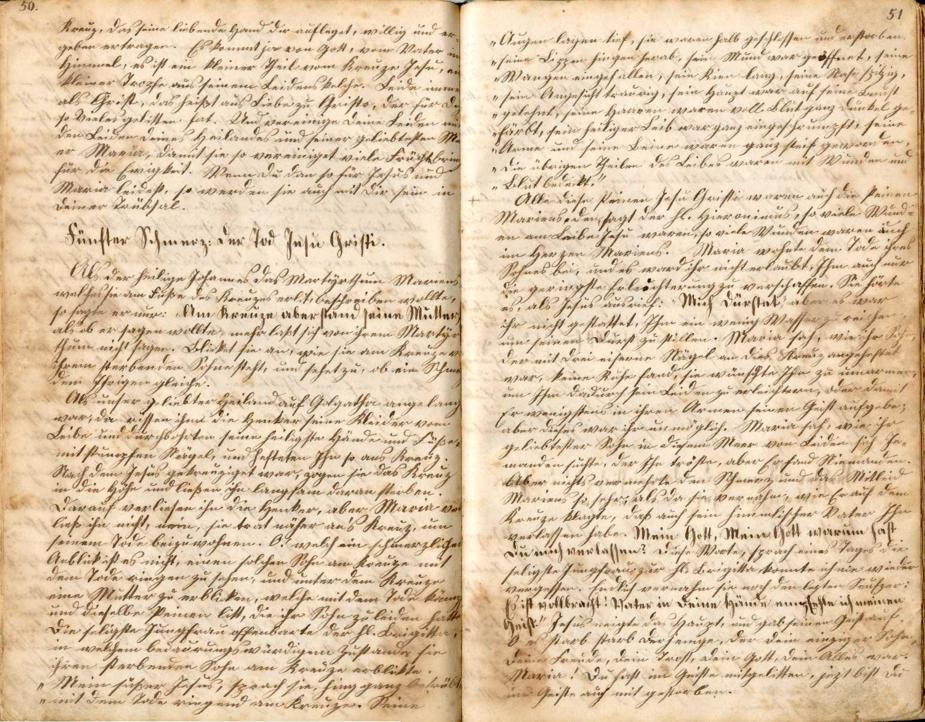 50.
Kreuz, das seine liebende Hand dir aufleget, willig und er-
geben ertragen. Es kommt ja von Gott, vom Vater
Himmel, es ist ein kleiner Theil vom Kreuze Jesu,
kleiner Tropfe aus seinem Leidenskelche. Leide
als Christ, das heißt aus Liebe zu Christo, der für
so Vieles gelitten hat. Und vereinige deine Leiden
den Leiden deines Heilandes und seiner geliebtesten
er Maria, damit sie so vereiniget viele Früchte
für die Ewigkeit. Wenn du dan so für Jesus und
Maria leidest, so werden sie auch mit dir sein in
deiner Trübsal.
Fünfter Schmerz: der Tod Jesu Christi.
Als der heilige Johannes das Martyrthum Mariens
welches sie am Fuße des Kreuzes erlit, beschreiben wollte,
so sagte er nur: Am Kreuze aber stand seine Mutter,
als ob er sagen wollte, mehr läßt sich von ihrem Martyr-
thum nicht sagen. Blicket sie an, wie sie am Kreuze
ihrem sterbenden Sohne steht, und sehet zu, ob ein
dem Ihrigen gleiche.
Als unser geliebter Heiland auf Golgatha angelangt
war, da rissen ihm die Henker seine Kleider vom
Leibe und durchbohrten seine heiligste Hände und Füße
mit stumpfen Nägel, und hefteten Ihn so ans Kreuz.
Nachdem Jesus gekreuziget war, zogen sie das Kreuz
in die Höhe und ließen ihn langsam daran sterben.
Darauf verließen ihn die Henker, aber Maria
ließ ihn nicht, nein, sie trat näher ans Kreuz, um
seinem Tode beizuwohnen. O! welch ein schmerzlicher
Anblick ist es nicht, einen solchen Sohn am Kreuze mit
dem Tode ringen zu sehen, und unter dem Kreuze
eine Mutter zu erblicken, welche mit dem Tode
und dieselben Peinen litt, die ihr Sohn zu leiden hatte
Die seligste Jungfrau offenbarte der hl. Brigitta,
in welchem bedaurungswürdigem Zustande sie
ihren sterbenden Sohn am Kreuze erblickte.
„Mein süßer Jesus, sprach sie, hing ganz betrübt
„mit dem Tode ringend am Kreuze. Seine
51
„Augen lagen tief, sie waren halb geschlossen und erstorben,
„seine Lippen hingen herab, sein Mund war geöffnet, seine
„Wangen eingefallen, sein Kien lang, seine Nase spizig,
„sein Angesicht traurig, sein Haupt war auf seine Brust
„gelehnt, seine Haaren waren voll Blut ganz dunkel ge-
„färbt, sein heiliger Leib war ganz eingeschrumpft, seine
„Arme und seine Beine waren ganz steif geworden,
„die übrigen Theilen des Leibes waren mit Wunden und
„Blut bedeckt."
Alle diese Peinen Jesu Christi waren auch die Peinen
Mariens, den, sagt der hl. Hieronimus, so viele Wund-
en am Leibe Jesu waren, so viele Wunden waren auch
im Herzen Mariens. Maria wohnte dem Tode ihres
Sohnes bei, und es ward ihr nicht erlaubt, Ihm auch nur
die geringste Erleuchterung zu verschaffen. Sie hörte
es, als Jesus ausrief: Mich dürstet, aber es war
ihr nicht gestattet, Ihm ein wenig Wasser zu reichen,
um seinen Durst zu stillen. Maria sah, wie ihr
der mit drei eiserne Nägel an das Kreuz angeheftet
war, keine Ruhe fand, sie wünschte Ihn zu umarmen,
um Ihm dadurch sein Leiden zu erleichtern, oder damit
Er wenigstens in ihren Armen seinen Geist aufgebe;
aber dieses war ihr unmöglich. Maria sah, wie ihr
geliebtester Sohn in diesem Meer von Leiden sich Je-
manden suchte, der Ihn tröste, aber Er fand Niemanden.
Aber nichts vermehrte den Schmerz und das Mitleid
Mariens so sehr, als da sie vernahm, wie Er auf dem
Kreuze klagte, daß auch sein himmlischer Vater Ihn
verlassen habe. Mein Gott, Mein Gott warum hast
Du mich verlassen? Diese Worte, sprach eines Tages die
seligste Jungfrau, zur hl. Brigitta konnte ich nie wieder
vergessen. Endlich vernahm sie noch den letzten Seufzer:
Es ist vollbracht! Vater in deine Hände empfehle ich meinen
Geist. Jesus neigte das Haupt, und gab seinen Geist auf.
O es starb starb derjenige, der dein einziger Sohn,
deine Freude, dein Trost, dein Gott, dein Alles war.
Maria! Du hast im Geiste mitgelitten, jezt bist du
im Geiste auch mit gestorben.